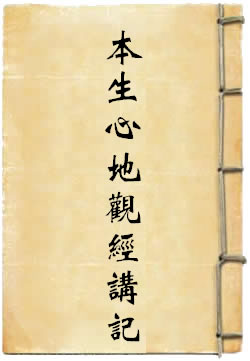 本生心地觀經講記